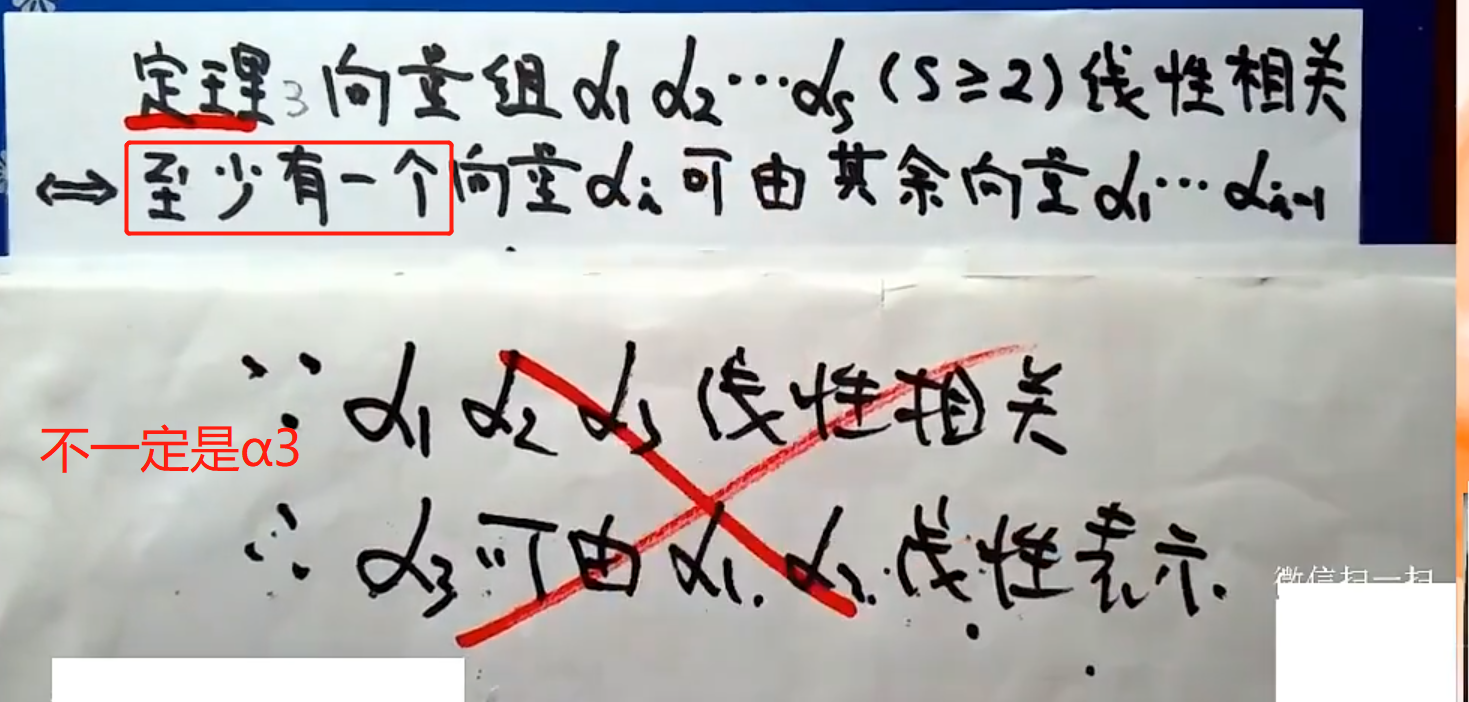 定理3 向量组α1 α2⋯αs (S≥2) 线性相关
⟺ 至少有一个向量αi可由其余向量α1⋯αi-1
∵ α1 α2 α3 线性相关
不一定是α3
∴ α3可由α1. α2. 线性表示.
微信扫一扫